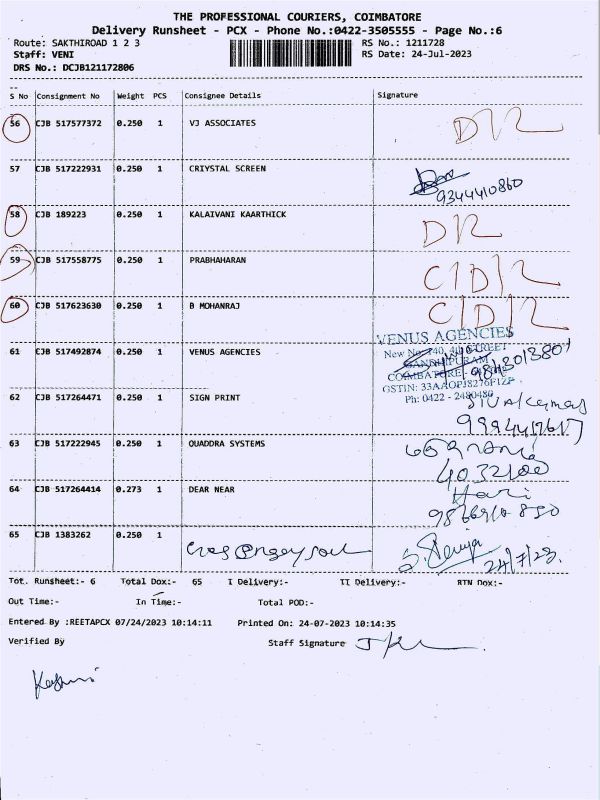 THE PROFESSIONAL COURIERS, COIMBATORE
Delivery Runsheet - PCX - Phone No.:0422-3505555 - Page No.:6
Route: SAKTHIROAD 1 2 3 RS No.: 1211728
Staff: VENI RS Date: 24-Jul-2023
DRS No.: DCJB121172806
S No Consignment No Weight PCS Consignee Details Signature
56 CJB 517577372 0.250 1 VJ ASSOCIATES D/2
57 CJB 517222931 0.250 1 CRIYSTAL SCREEN
9344410860
58 CJB 189223 0.250 1 KALAIVANI KAARTHICK D/2
59 CJB 517558775 0.250 1 PRABHAHARAN C/D/2
60 CJB 517623630 0.250 1 B MOHANRAJ C/D/2
VENUS AGENCIES
New No. 140, STREET
61 CJB 517492874 0.250 1 VENUS AGENCIES GANDHIPURAM
COIMBATORE
GSTIN: 33AAOPJ8276F1ZP
Ph: 0422 - 2480480
62 CJB 517264471 0.250 1 SIGN PRINT
63 CJB 517222945 0.250 1 QUADDRA SYSTEMS
64 CJB 517264414 0.273 1 DEAR NEAR Hari
65 CJB 1383262 0.250 1
24/7/23.
Tot. Runsheet:- 6 Total Dox:- 65 I Delivery:- II Delivery:- RTN Dox:-
Out Time:- In Time:- Total POD:-
Entered By :REETAPCX 07/24/2023 10:14:11 Printed On: 24-07-2023 10:14:35
Verified By Staff Signature